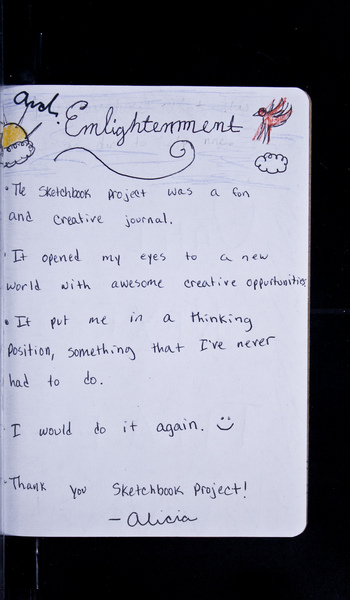 and,
Enlightenment
• The Sketchbook Project was a fun
and creative journal.
• It opened my eyes to a new
world with awesome creative oppurtunities
• It put me in a thinking
position, something that I've never
had to do.
• I would do it again. :)
• Thank you Sketchbook Project!
- Alicia